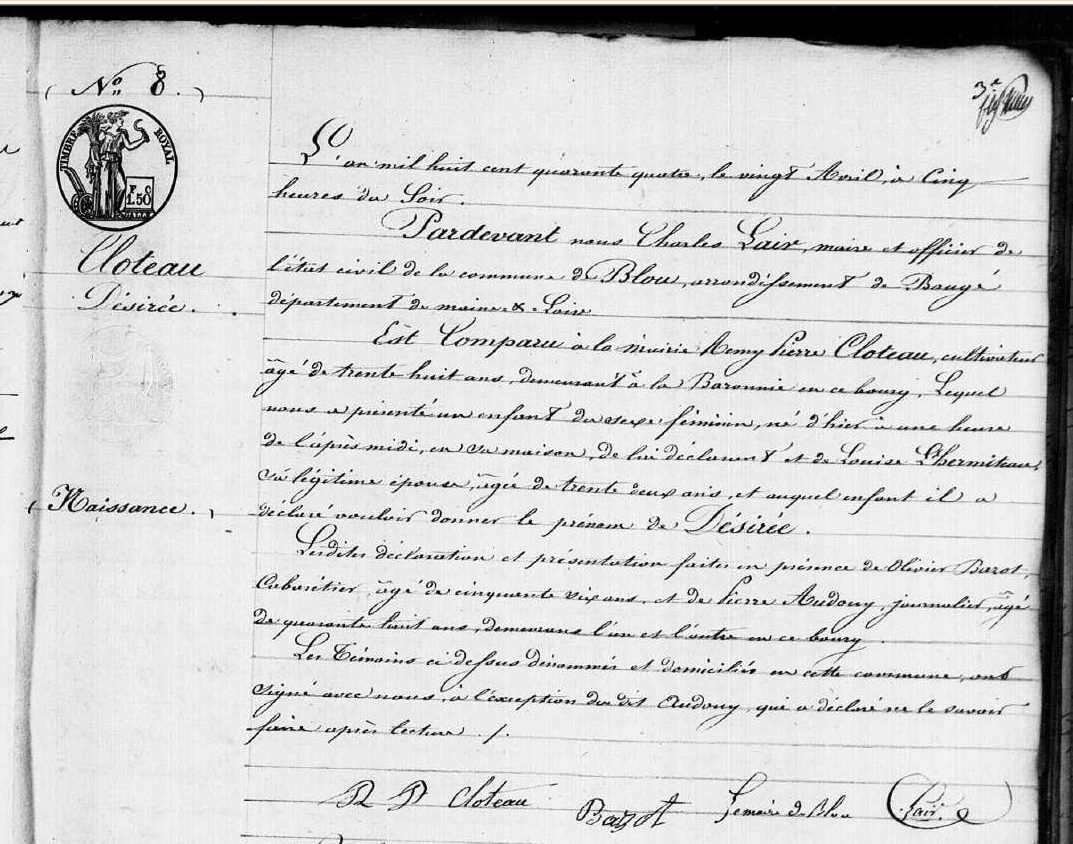 Nº 8.
3e
TIMBRE ROYAL
F
1.50
Cloteau
Désirée.
Naissance.
L'an mil huit cent quarante quatre, le vingt Avril, à Cinq
heures du Soir.
Pardevant nous Charles Lair, maire et officier de
l'état civil de la commune de Blou, arrondissement de Baugé
département de maine & Loire
Est Comparu à la mairie Remy Pierre Cloteau, cultivateur
âgé de trente huit ans, demeurant à la Baronnie en ce bourg, Lequel
nous a présenté un enfant du sexe féminin, né d'hier à une heure
de l'après midi, en sa maison, de lui déclarant et de Louise Lhermiteau
sa légitime épouse, âgée de trente deux ans, et auquel enfant il a
déclaré vouloir donner le prénom de Désirée.
Lesdites déclaration et présentation faites en présence de Olivier Bazot,
Cabarétier, âgé de cinquante six ans, et de Pierre Audouy, journalier, âgé
de quarante huit ans, demeurans l'un et l'autre en ce bourg.
Les Témoins ci dessus dénommés et domiciliés en cette commune, ont
signé avec nous, à l'éxception du dit Audouy, qui a déclaré ne le savoir
faire après lecture ./.
R P Cloteau
Bazot
Le maire de Blou
Lair